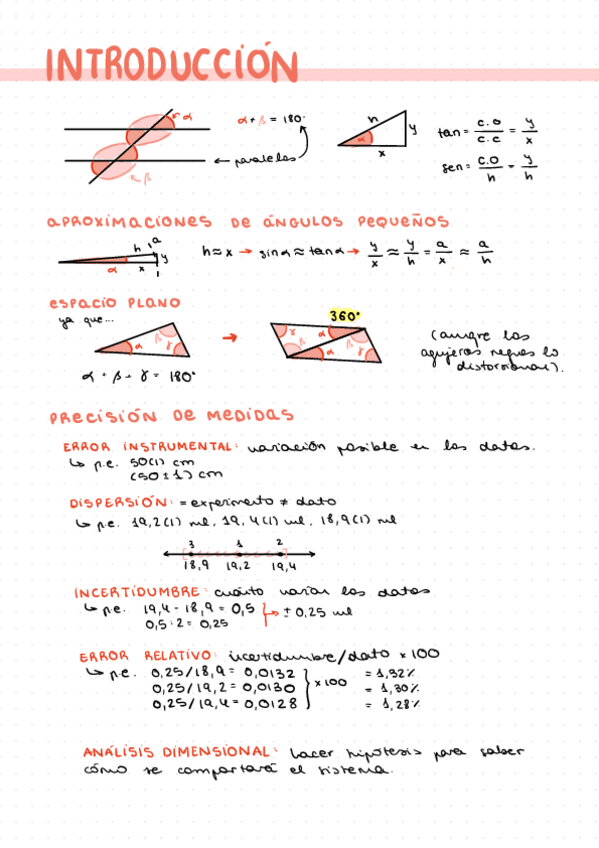 INTRODUCCIÓN
α
α + β = 180°
← paralelas
β
h
y
α
x
tan = c.o / c.c = y / x
sen = c.o / h = y / h
APROXIMACIONES DE ÁNGULOS PEQUEÑOS
h a y α x
h ≈ x → sin α ≈ tan α → y/x ≈ y/h = a/x ≈ a/h
ESPACIO PLANO
ya que...
α β γ
→
360°
γ β α α β γ
(aunque los
agujeros negros lo
distorsionan).
α + β + γ = 180°
PRECISIÓN DE MEDIDAS
ERROR INSTRUMENTAL: variación posible en los datos.
↳ p.e. 50(1) cm
(50 ± 1) cm
DISPERSIÓN: = experimento ≠ dato
↳ p.e. 19,2(1) ml, 19,4(1) ml, 18,9(1) ml
3 1 2
18,9 19,2 19,4
INCERTIDUMBRE: cuánto varían los datos
↳ p.e. 19,4 - 18,9 = 0,5
0,5 : 2 = 0,25
→ ± 0,25 ml
ERROR RELATIVO: incertidumbre/dato × 100
↳ p.e. 0,25/18,9 = 0,0132 = 1,32%
0,25/19,2 = 0,0130 × 100 = 1,30%
0,25/19,4 = 0,0128 = 1,28%
ANÁLISIS DIMENSIONAL: hacer hipótesis para saber
cómo se comportará el sistema.